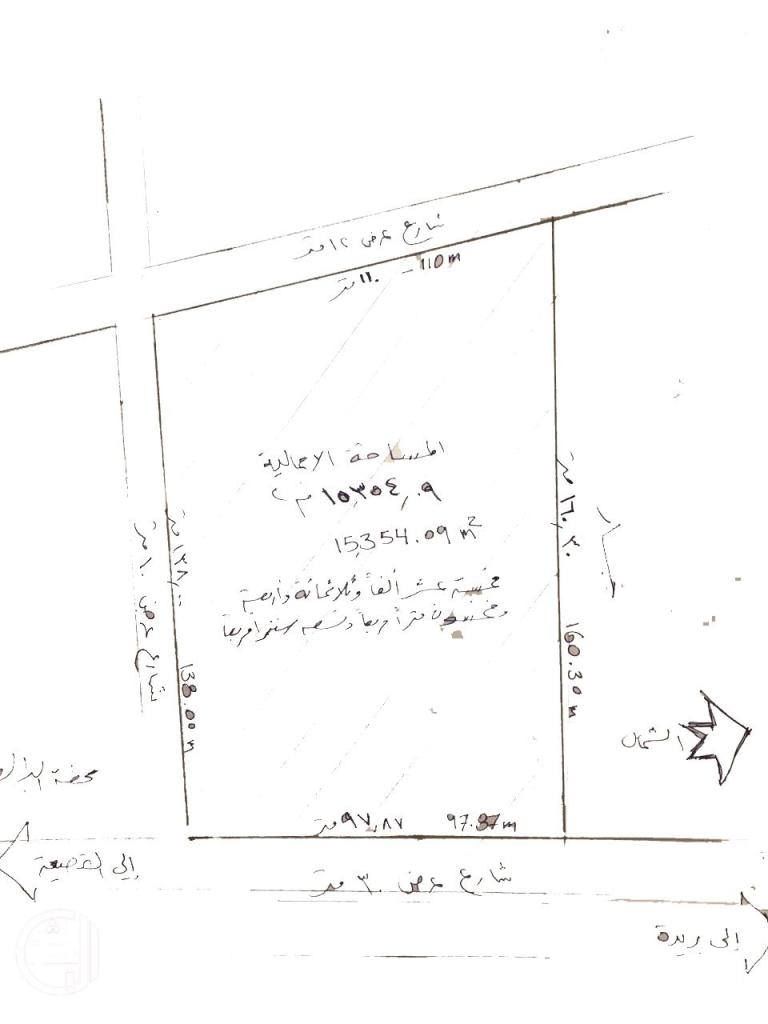 شارع عرض ١٢ متر
١١٠ متر - 110 m
المساحة الاجمالية
١٥٣٥٤,٠٩ م٢
15,354.09 m²
خمسة عشر ألفاً وثلاثمائة وأربعة
وخمسون متراً مربعاً وتسعه سنتمتراً مربعاً
١٦٠,٣٠ متر
160.30 m
جار
١٣٨,٠٠ متر
138.00 m
شارع عرض ١٠ متر
الشمال
محطة
٩٧,٨٧ متر 97.87 m
إلى القصيعة
شارع عرض ٣٠ متر
إلى بريدة